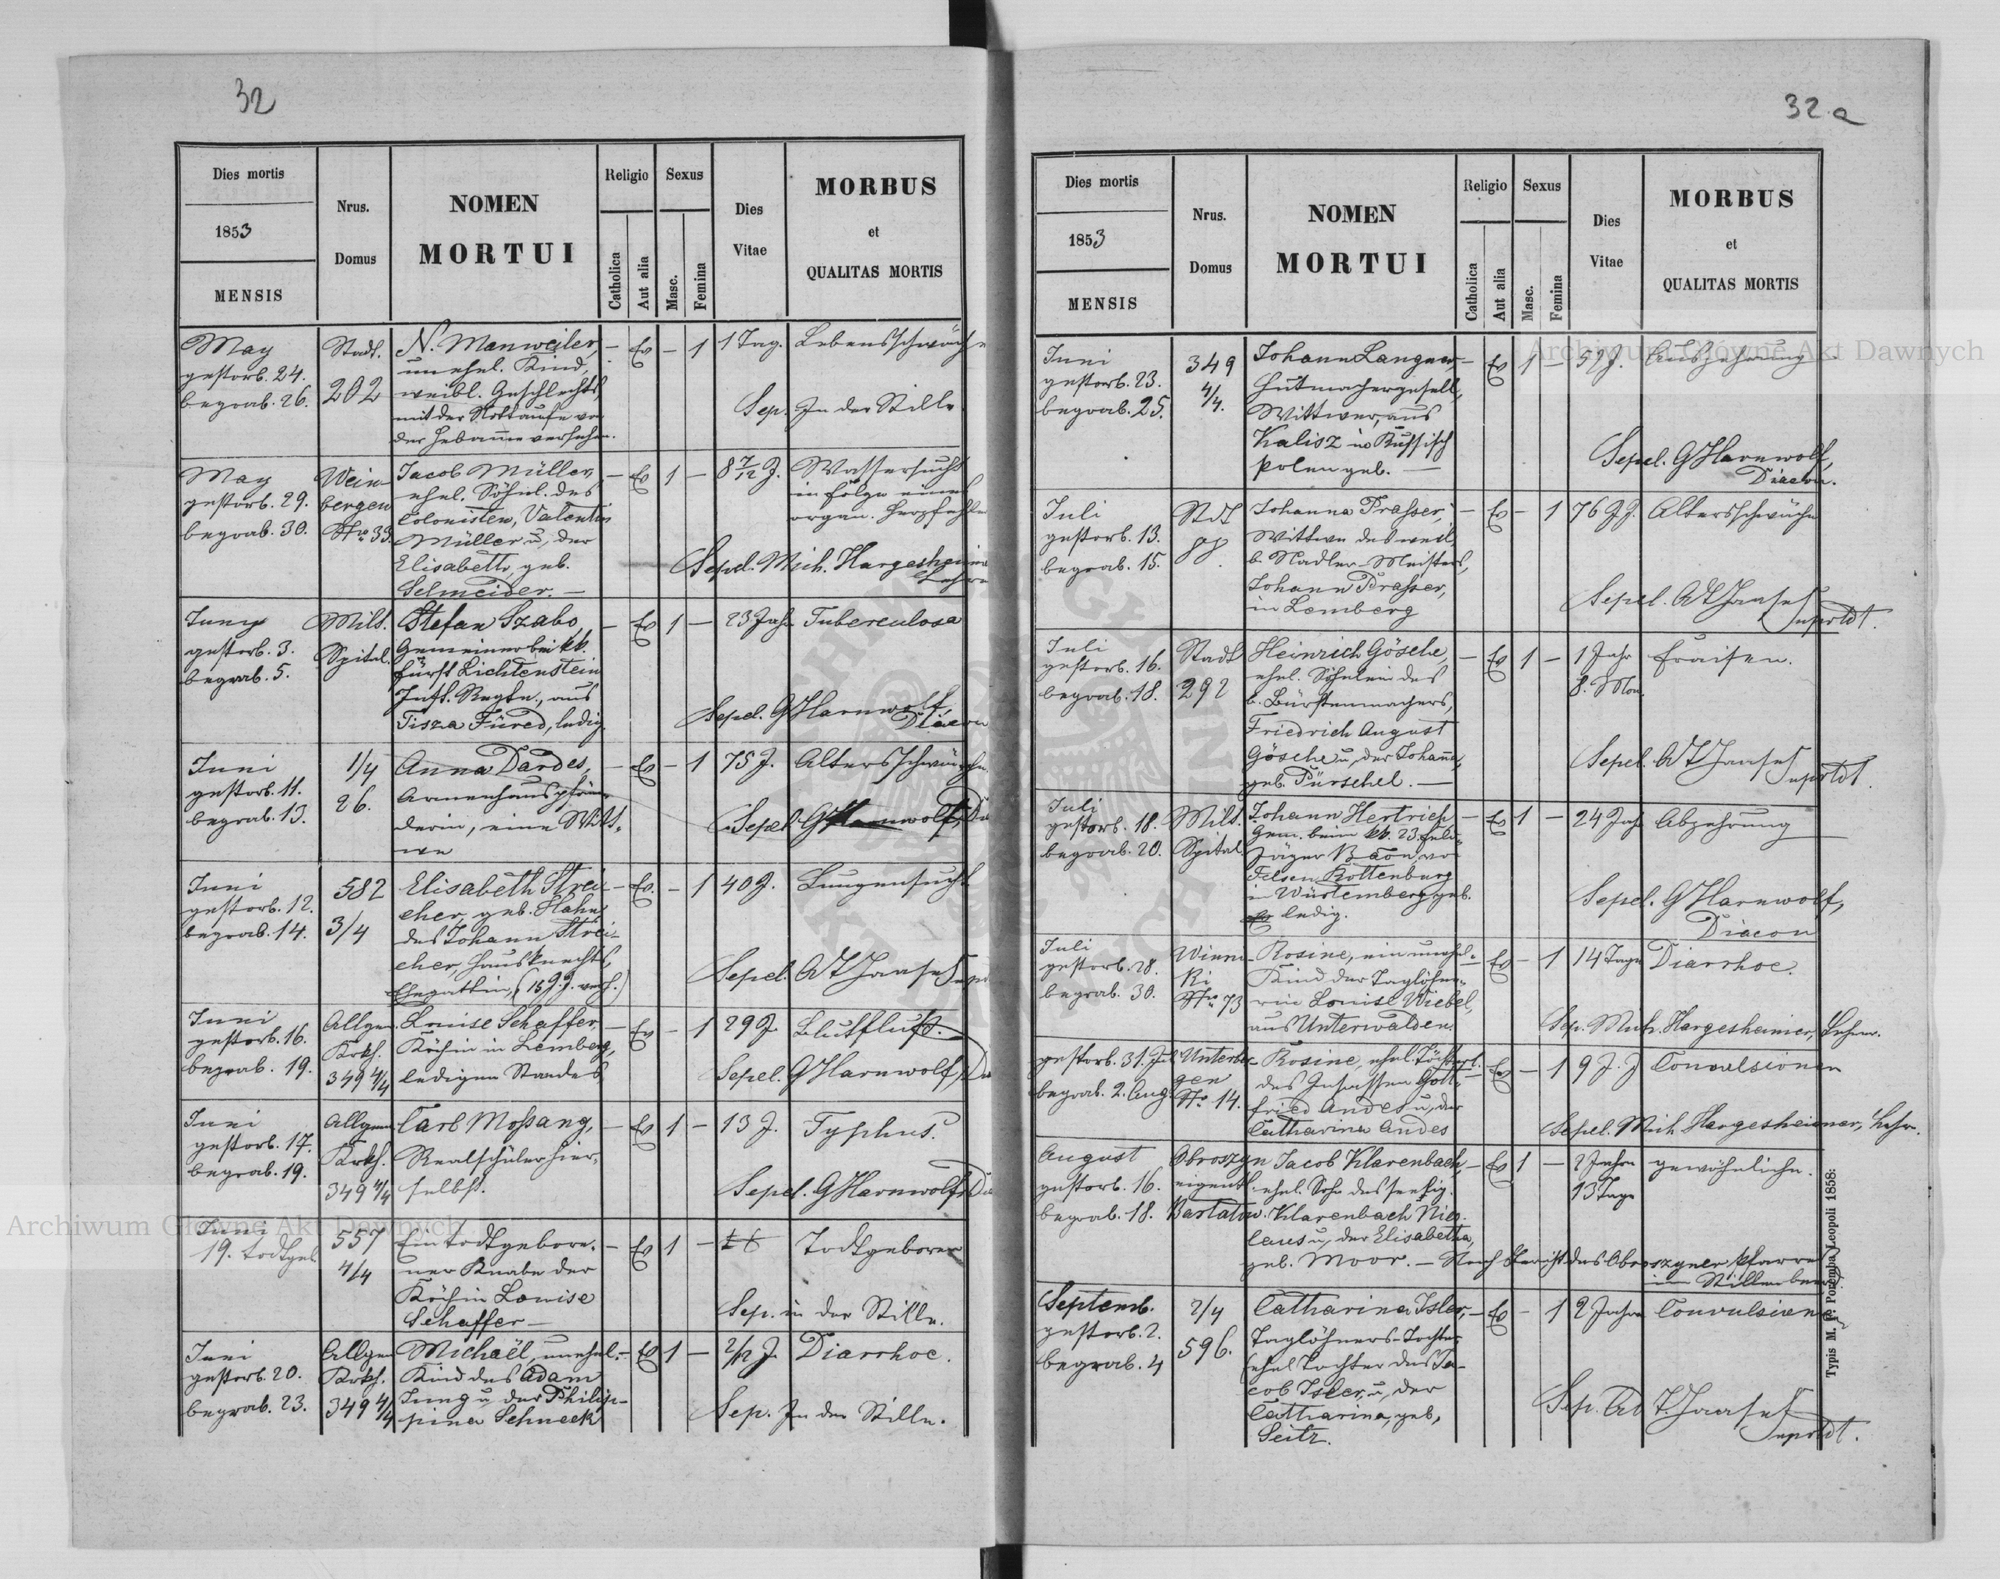 32
Dies mortis
1853
MENSIS
Nrus.
Domus
NOMEN
MORTUI
Religio
Catholica
Aut alia
Sexus
Masc.
Femina
Dies
Vitae
MORBUS
et
QUALITAS MORTIS
May
gestorb. 24.
begrab. 26.
Stadt.
202
N. Manweiler,
unehel. Kind,
weibl. Geschlechts,
mit der Nottaufe von
der Hebamme versehen.
— Ev — 1
1 Tag.
Lebensschwäche
Sep. In der Stille
May
gestorb. 29.
begrab. 30.
Wein-
bergen
Nro 33.
Jacob Müller,
ehel. Söhnl. des
Colonisten, Valentin
Müller u, der
Elisabeth, geb.
Schneider. —
— Ev 1 —
8 7/12 J.
Wassersucht
in Folge eines
organ. Herzfehlers
Sepel. Mich. Hargesheimer
Lehrer
Juny
gestorb. 3.
begrab. 5.
Milit.
Spital.
Stefan Szabo,
Gemeiner bei kk.
Fürst Lichtenstein
Inft. Regte., aus
Tisza Füred, ledig.
— Ev 1 —
23 Jahr
Tuberculosa
Sepel. G Harnwolf,
Diacon
Juni
gestorb. 11.
begrab. 13.
1/4
26.
Anna Dardes,
Armenhauspfrün-
derin, eine Witt-
we
— Ev — 1
75 J.
Altersschwäche.
Sepel G Harnwolf, Dia
Juni
gestorb. 12.
begrab. 14.
582
3/4
Elisabeth Strei-
cher, geb. Hahn
des Johann Strei-
cher, Hausknechts,
Ehegattin, (18 J. J. verh.)
— Ev. — 1
40 J.
Lungensucht
Sepel.
Juni
gestorb. 16.
begrab. 19.
Allgem.
Krkh.
349 4/4
Louise Schaffer,
Köchin in Lemberg,
ledigen Standes
— Ev — 1
29 J.
Blutfluß.
Sepel. G Harnwolf, Dia
Juni
gestorb. 17.
begrab. 19.
Allgem.
Krkh.
349 4/4
Carl Moßang,
Realschüler hier-
selbst.
— Ev 1 —
13 J.
Typhus.
Sepel. G Harnwolf, Dia
Juni
19. todtgeb.
557
4/4
Ein todtgebore-
ner Knabe der
Köchin Lowise
Schaffer —
— Ev 1 —
Todtgeboren
Sep. in der Stille.
Juni
gestorb. 20.
begrab. 23.
Allgem
Krkh.
349 4/4
Michaël, unehel.
Kind des Adam
Jung u der Philip-
pina Schneek
— Ev 1 —
2/12 J.
Diarrhoe.
Sep. In der Stille.
32 a
Dies mortis
1853
MENSIS
Nrus.
Domus
NOMEN
MORTUI
Religio
Catholica
Aut alia
Sexus
Masc.
Femina
Dies
Vitae
MORBUS
et
QUALITAS MORTIS
Juni
gestorb. 23.
begrab. 25.
349
4/4.
Johann Langner,
Hutmachergesell,
Wittwer, aus
Kalisz in Russisch
Polen geb. —
— Ev 1 —
52 J.
Auszehrung
Sepel. G Harnwolf,
Diacon.
Juli
gestorb. 13.
begrab. 15.
Stdt
88.
Johanna Prasser,
Wittwe des weil.
b Nadler-Meisters,
Johann Prasser,
in Lemberg
— Ev — 1
76 J. J.
Altersschwäche
Sepel.
Juli
gestorb. 16.
begrab. 18.
Stadt
292
Heinrich Gösche,
ehel. Söhnlein des
b. Bürstenmachers,
Friedrich August
Gösche u, der Johanna,
geb. Pürschel. —
— Ev 1 —
1 Jahr
8. Mon.
Fraisen.
Sepel.
Juli
gestorb. 18.
begrab. 20.
Milit.
Spital
Johann Hertrich
Gem. beim kk. 23. Feld-
Jäger Baon, von
Felsen Rottenburg
in Würtemberg geb.
ledig.
— Ev 1 —
24 Jahr
Abzehrung
Sepel. G Harnwolf,
Diacon
Juli
gestorb. 28.
begrab. 30.
Winni-
ki
Nro 73
Rosine, ein unehel.
Kind der Taglöhne-
rin Louise Wiebel,
aus Unterwalden.
— Ev — 1
14 Tage
Diarrhoe.
Sep. Mich. Hargesheimer, Lehrer.
gestorb. 31. Jul
begrab. 2. Aug.
Unterber-
gen
No 14.
Rosine, ehel. Töchterl.
des Insassen Gott-
fried Andes u, der
Catharina Andes
— Ev — 1
9 J. J
Convulsionen
Sepel. Mich Hargesheimer, Lehr.
August
gestorb. 16.
begrab. 18.
Obroszyn
eigentl.
Bartatow.
Jacob Klarenbach,
ehel. Sohn des
Klarenbach Nico-
laus u, der Elisabetha,
geb. Moor. — Nach Bericht des Obroszyner Pfarrers
— Ev 1 —
2 Jahre
13 Tage
gewöhnliche.
Septemb.
gestorb. 2.
begrab. 4
2/4
596.
Catharina Isler,
Taglöhners-Tochter
(ehel Tochter des Ja-
cob Isler, u, der
Catharina, geb,
Seitz.
— Ev — 1
2 Jahre
Convulsionen
Sep.
Typis M. F. Poremba Leopoli 1858.
Archiwum Główne Akt Dawnych
Archiwum Główne Akt Dawnych